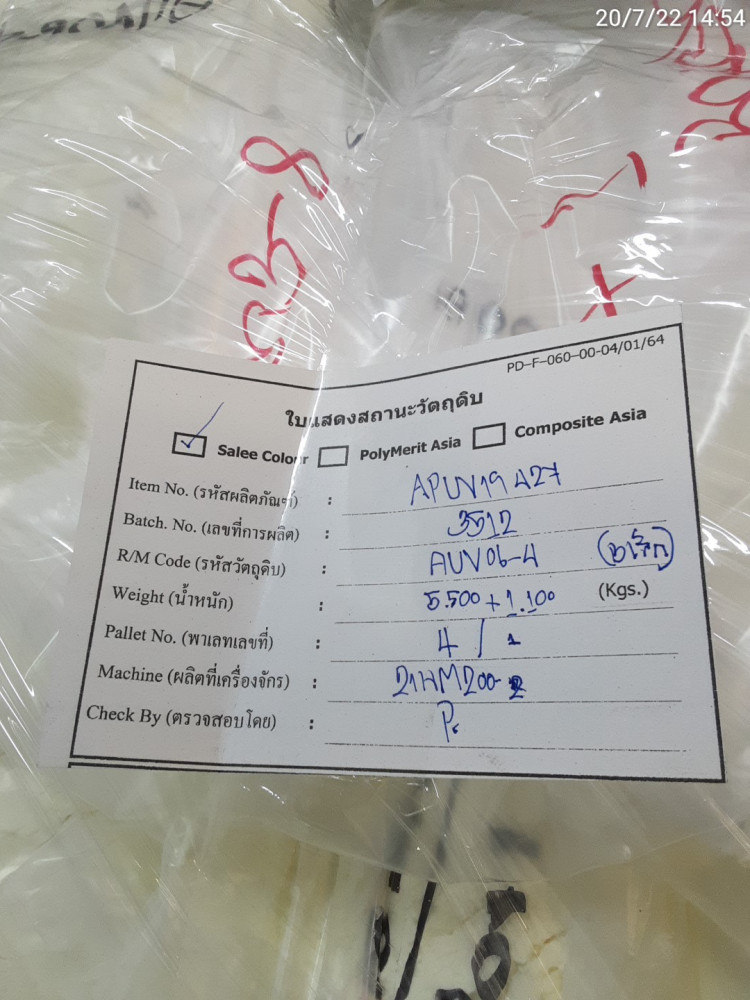 20/7/22 14:54
PD-F-060-00-04/01/64
ใบแสดงสถานะวัตถุดิบ
Salee Colour PolyMerit Asia Composite Asia
Item No. (รหัสผลิตภัณฑ์) : APUV19427
Batch. No. (เลขที่การผลิต) : 3512
R/M Code (รหัสวัตถุดิบ) : AUV06-4
Weight (น้ำหนัก) : 5.500 + 1.100 (Kgs.)
Pallet No. (พาเลทเลขที่) : 4 / 1
Machine (ผลิตที่เครื่องจักร) : 21HM200-2
Check By (ตรวจสอบโดย) : P.